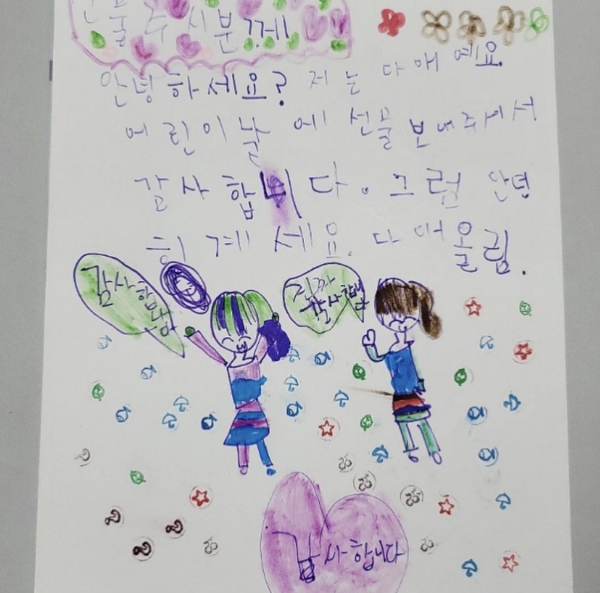 선물 주시분께
안녕하세요? 저는 다애예요.
어린이날에 선물 보내주셔서
감사합니다. 그럼 안녕
히 계세요. 다애 올림.
감사합니다
진짜
감사합니다
감사합니다